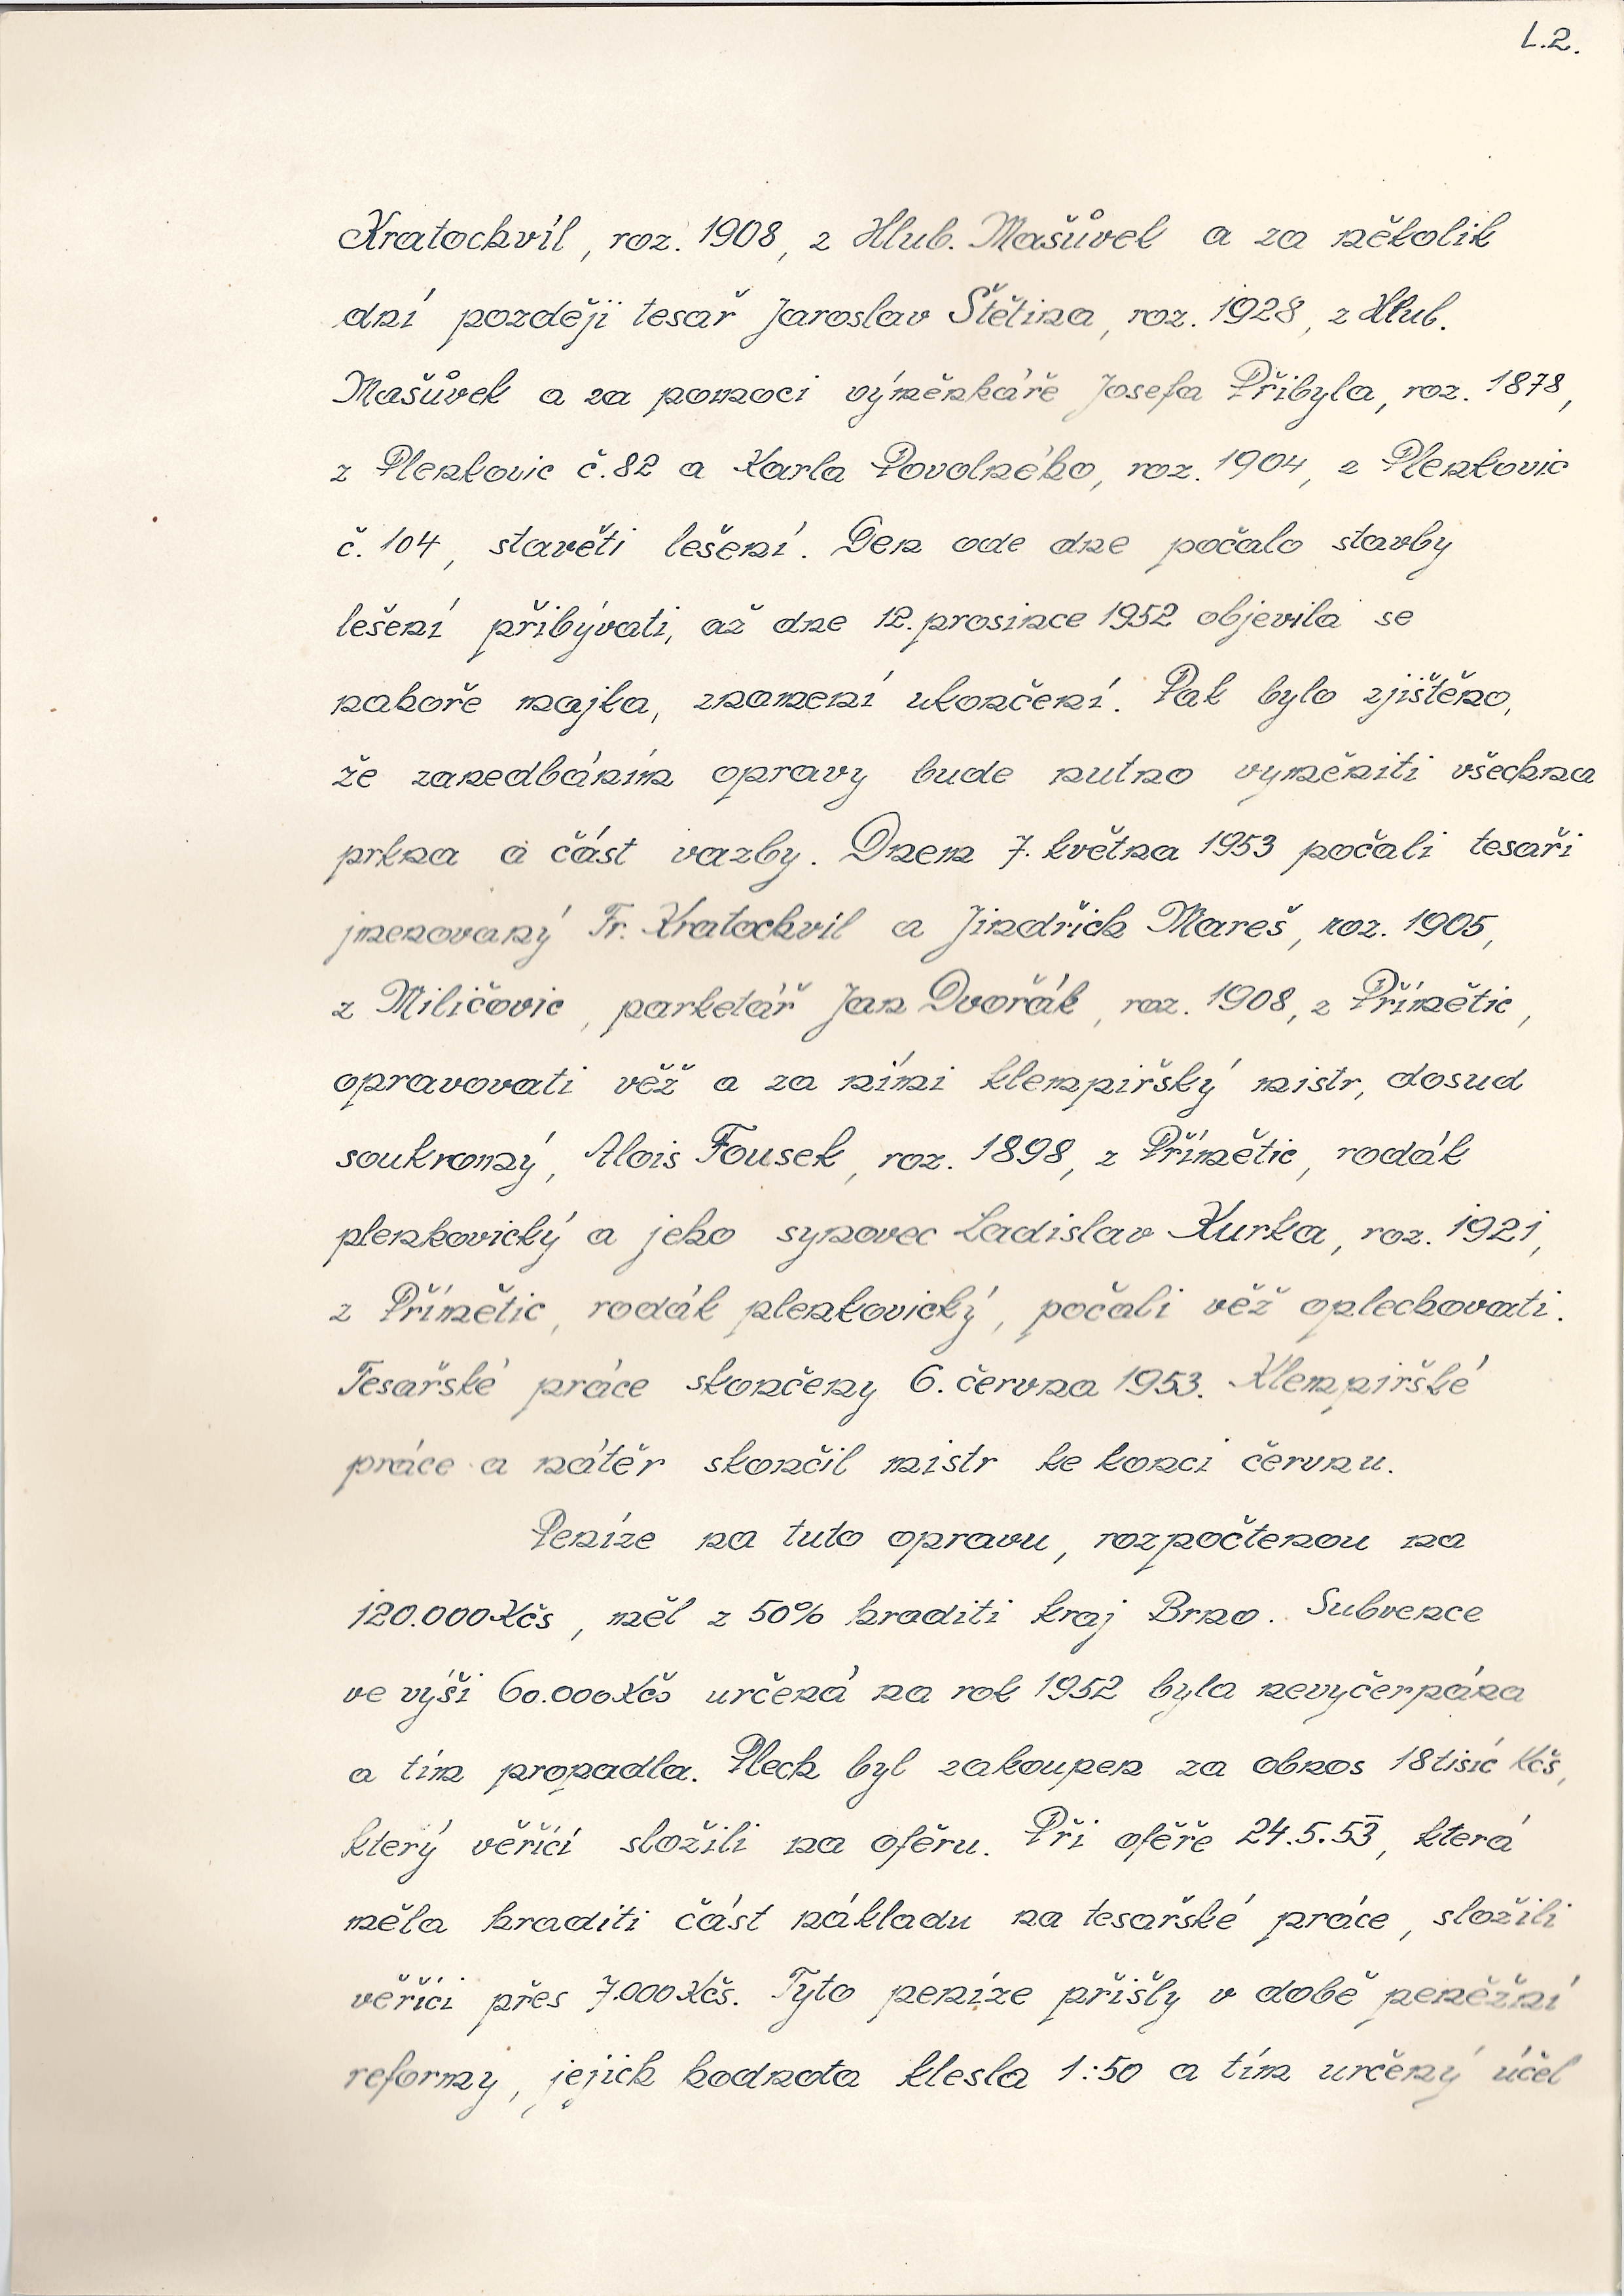 L.2.
Kratochvíl, roz. 1908, z Hlub. Mašůvek a za několik
dní později tesař Jaroslav Štětina, roz. 1928, z Hlub.
Mašůvek a za pomoci výměnkáře Josefa Přibyla, roz. 1878,
z Plenkovic č. 82 a Karla Povolného, roz. 1904, z Plenkovic
č. 104, stavěti lešení. Den ode dne počalo stavby
lešení přibývati, až dne 12. prosince 1952 objevila se
nahoře majka, znamení ukončení. Pak bylo zjištěno,
že zanedbáním opravy bude nutno vyměniti všechna
prkna a část vazby. Dnem 7. května 1953 počali tesaři
jmenovaný Fr. Kratochvil a Jindřich Mareš, roz. 1905,
z Miličovic, parketář Jan Dvořák, roz. 1908, z Přímětic,
opravovati věž a za ními klempiřský mistr, dosud
soukromý, Alois Fousek, roz. 1898, z Přímětic, rodák
plenkovický a jeho synovec Ladislav Kurka, roz. 1921,
z Přímětic, rodák plenkovický, počali věž oplechovati.
Tesařské práce skončeny 6. června 1953. Klempiřské
práce a nátěr skončil mistr ke konci červnu.
Peníze na tuto opravu, rozpočtenou na
120.000 Kčs, měl z 50% hraditi kraj Brno. Subvence
ve výši 60.000 Kčs určená na rok 1952 byla nevyčerpána
a tím propadla. Plech byl zakoupen za obnos 18 tisíc Kčš,
který věřící složili na ofěru. Při ofěře 24.5.53, která
měla hraditi část nákladu na tesařské práce, složili
věřící přes 7.000 Kčs. Tyto peníze přišly v době peněžní
reformy, jejich hodnota klesla 1:50 a tím určený účel